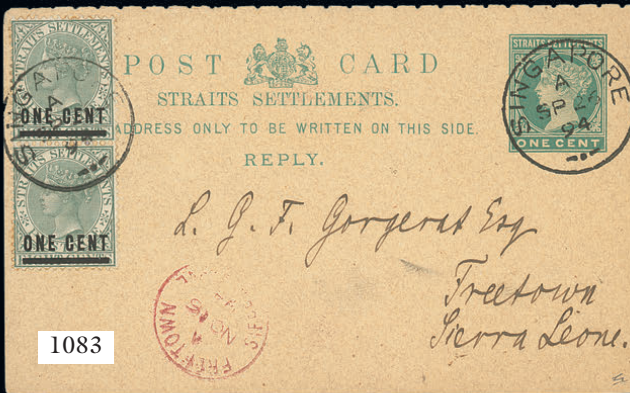 POST CARD
STRAITS SETTLEMENTS.
ADDRESS ONLY TO BE WRITTEN ON THIS SIDE.
REPLY.
STRAITS SETTLEMENTS
ONE CENT
STRAITS SETTLEMENTS
ONE CENT
STRAITS SETTLEMENTS
ONE CENT
SINGAPORE
A
SP 26
94
SINGAPO
A
L. G. F. Gorgerat Esq
Freetown
Sierra Leone.
FREETOWN
NO
1083